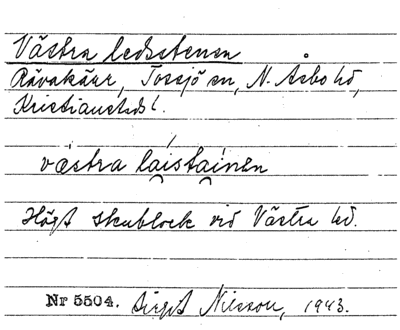 Västra ledsstenen
Rävakärr, Tossjö sn, N. Åsbo hd,
Kristianstads l.
västra laistainen
Högt stenblock vid Västra led.
Nr 5504. Birgit Nilsson, 1943.